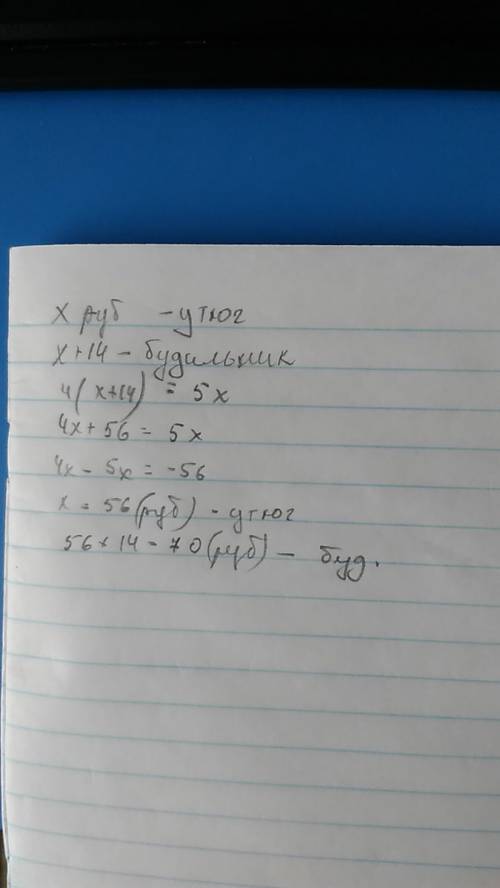 x руб - утюг
x+14 - будильник
4(x+14) = 5x
4x+56 = 5x
4x - 5x = -56
x = 56(руб) - утюг
56+14 = 70(руб) - буд.